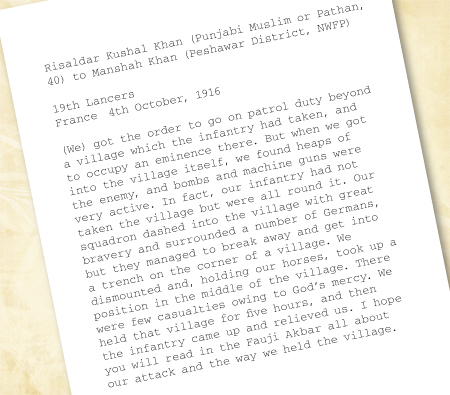 Risaldar Kushal Khan (Punjabi Muslim or Pathan,
40) to Manshah Khan (Peshawar District, NWFP)
19th Lancers
France 4th October, 1916
(We) got the order to go on patrol duty beyond
a village which the infantry had taken, and
to occupy an eminence there. But when we got
into the village itself, we found heaps of
the enemy, and bombs and machine guns were
very active. In fact, our infantry had not
taken the village but were all round it. Our
squadron dashed into the village with great
bravery and surrounded a number of Germans,
but they managed to break away and get into
a trench on the corner of a village. We
dismounted and, holding our horses, took up a
position in the middle of the village. There
were few casualties owing to God's mercy. We
held that village for five hours, and then
the infantry came up and relieved us. I hope
you will read in the Fauji Akbar all about
our attack and the way we held the village.